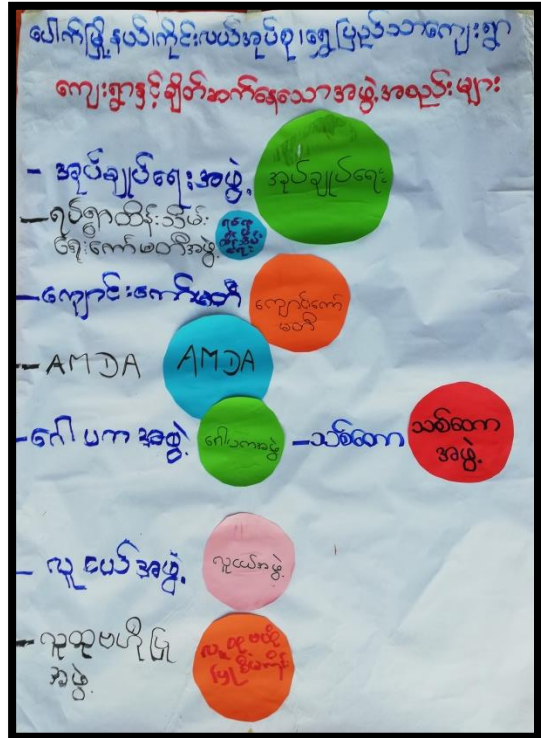 ပေါက်မြို့နယ်၊ကိုင်းလယ်အုပ်စု၊ရွှေပြည်သာကျေးရွာ
ကျေးရွာနှင့်ချိတ်ဆက်နေသောအဖွဲ့အစည်းများ
- အုပ်ချုပ်ရေးအဖွဲ့ အုပ်ချုပ်ရေး
- ရပ်ရွာထိန်းသိမ်း
ရေးကော်မတီအဖွဲ့
- ကျောင်းကော်မတီ ကျောင်းကော်
မတီ
- AMDA AMDA
- ဂေါပကအဖွဲ့ ဂေါပကအဖွဲ့ - သစ်တော သစ်တော
အဖွဲ့
- လူငယ်အဖွဲ့ လူငယ်အဖွဲ့
- လူထုဗဟိုပြု
အဖွဲ့
လူထုဗဟို
ပြုစီမံကိန်း